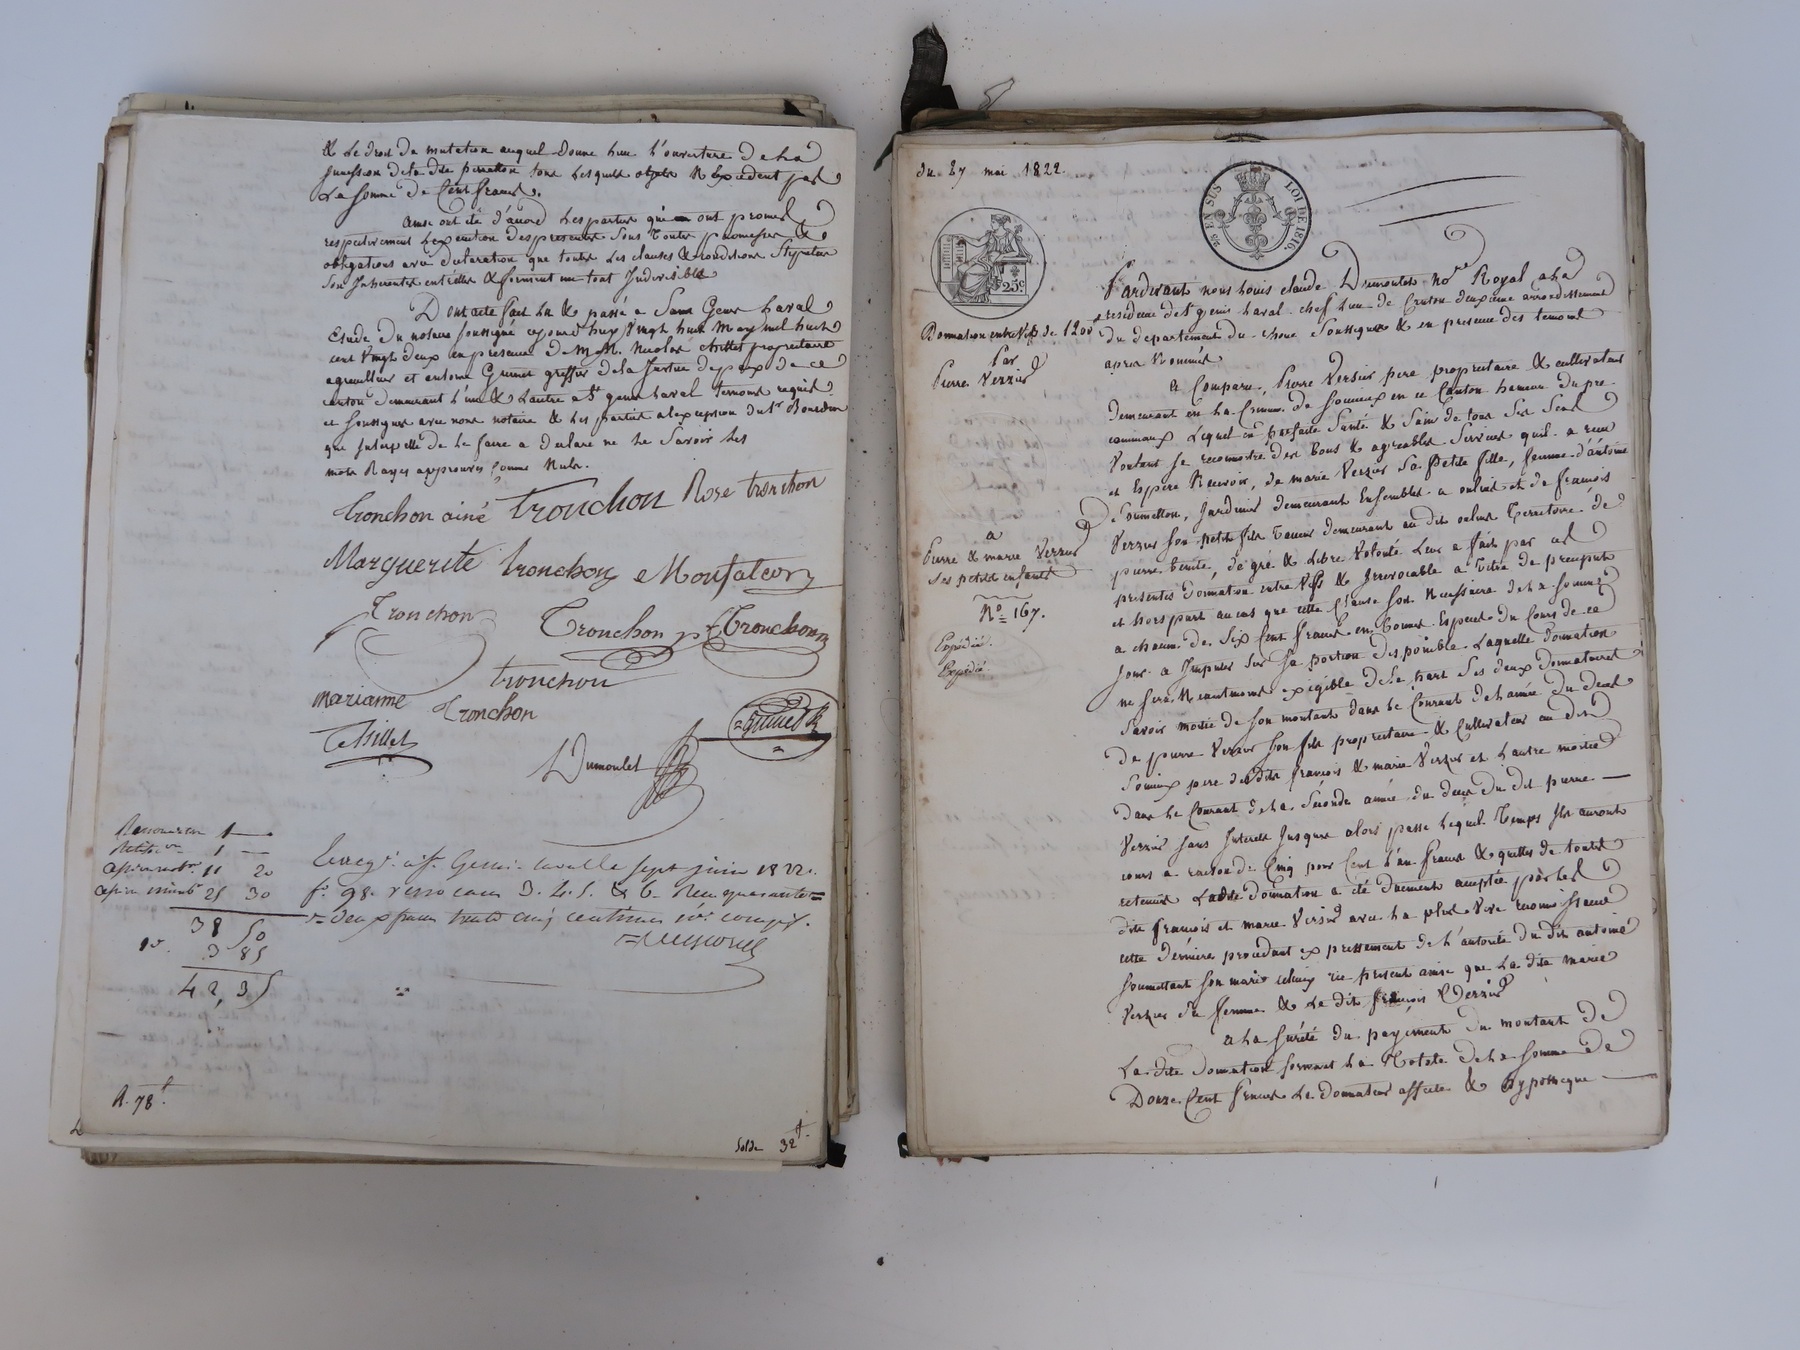 & Le droit de mutation auquel donne lieu l'ouverture de La
succession de la dite perretton tous Lesquels objets N'Excedent pas
La somme de Cent francs.
Ainsi ont été d'accord Les parties qui ont promis
respectivement L'execution des presentes sous toutes promesses &
obligations avec declaration que toutes Les clauses & conditions Stipulées
Son Inherentes entr'elles & forment un tout Indivisible
Dont acte fait Lu & passé a Saint Genis Laval
Etude du notaire soussigné aujourd'huy Vingt huit May mil huit
cent Vingt deux en presence de M.M. Nicolas thillet proprietaire
agriculteur et antoine Grimet greffier de la Justice de paix de ce
canton demeurant L'un & Lautre a St genis Laval temoins requis
et soussignés avec nous notaire & Les parties a l'exception du sr
que Interpellé de Le faire a Declaré ne Le Savoir Les
mots Rayés approuvés Comme Nuls.
tronchon ainé tronchon Rose tronchon
Marguerite tronchon Monfalcon
Tronchon
Tronchon p f Tronchon
tronchon
marianne tronchon
Thillet
Dumoulet
1
1 —
11 20
25 30
38 50
1er. 3 85
42,35
Enreg. à St Genis Laval le sept juin 1822.
f. 98 verso cases 3. 4. 5. & 6. Reçu quarante=
=deux francs trente cinq centimes 10e compris.
A. 78f.
Solde 32f.
Du 27 mai 1822.
25 EN SUS LOI DE 1816.
25c
Donnation entre Vifs de 1200f
Par
Pierre Verzier
a
Pierre & marie Verzier
Ses petits enfants
No. 167.
Expédié.
Expédié.
Pardevant nous Louis claude Dumoulet Nore Royal a La
residence de St genis Laval chef Lieu de Canton deuxieme arrondissement
du departement du Rhone Soussigné & en presence des temoins
apres Nommés
A Comparu, Pierre Verzier pere proprietaire & cultivateur
demeurant en La Commune de Soucieux en ce Canton hameau du pre
commeaux Lequel en parfaite Santé & Sain de tous Ses Sens
Voulant Se reconnoitre des bons & agreables Services quil a reçu
et Espere Recevoir, de marie Verzier Sa Petite fille, femme d'antoine
Soumetton, Jardinier demeurant Ensembles a oulins et de francois
Verzier Son petit fils demeurant au dit oulins Territoire de
pierre benite, de gré & Libre Volonté Leur a fait par ces
presentes Donnation entre Vifs & Irrevocable a titre de preciput
et hors part au cas que cette Clause soit Necessaire de La somme
a chacun de Six Cent francs en bonnes Especes du Cours de ce
Jour a Imputer Sur Sa portion disponible Laquelle donnation
ne sera Neantmoins exigible de La part des deux Donnataires
Savoir moitié de Son montant dans Le Courant de L'année du deces
De pierre Verzier Son fils proprietaire & Cultivateur au dit
Soucieux pere des dits francois & marie Verzier et L'autre moitié
Dans Le Courant de La Seconde année du deces du dit pierre —
Verzier Sans Interets Jusques alors passé Lequel Temps Ils auront
cours a raison de Cinq pour Cent L'an francs & quittes de toutes
retenues Ladite Donnation a été duement acceptée par Les
dits francois et marie Verzier avec La plus Vive reconnoissance
cette derniere procedant expressement de L'autorité du dit antoine
Soumettant Son mari icy present ainsi que La dite marie
Verzier Sa femme & Le dit francois Verzier
a La Sureté du payement du montant de
La dite Donnation formant La Totale de La Somme de
Douze Cent francs Le Donnateur affecte & hypotheque —